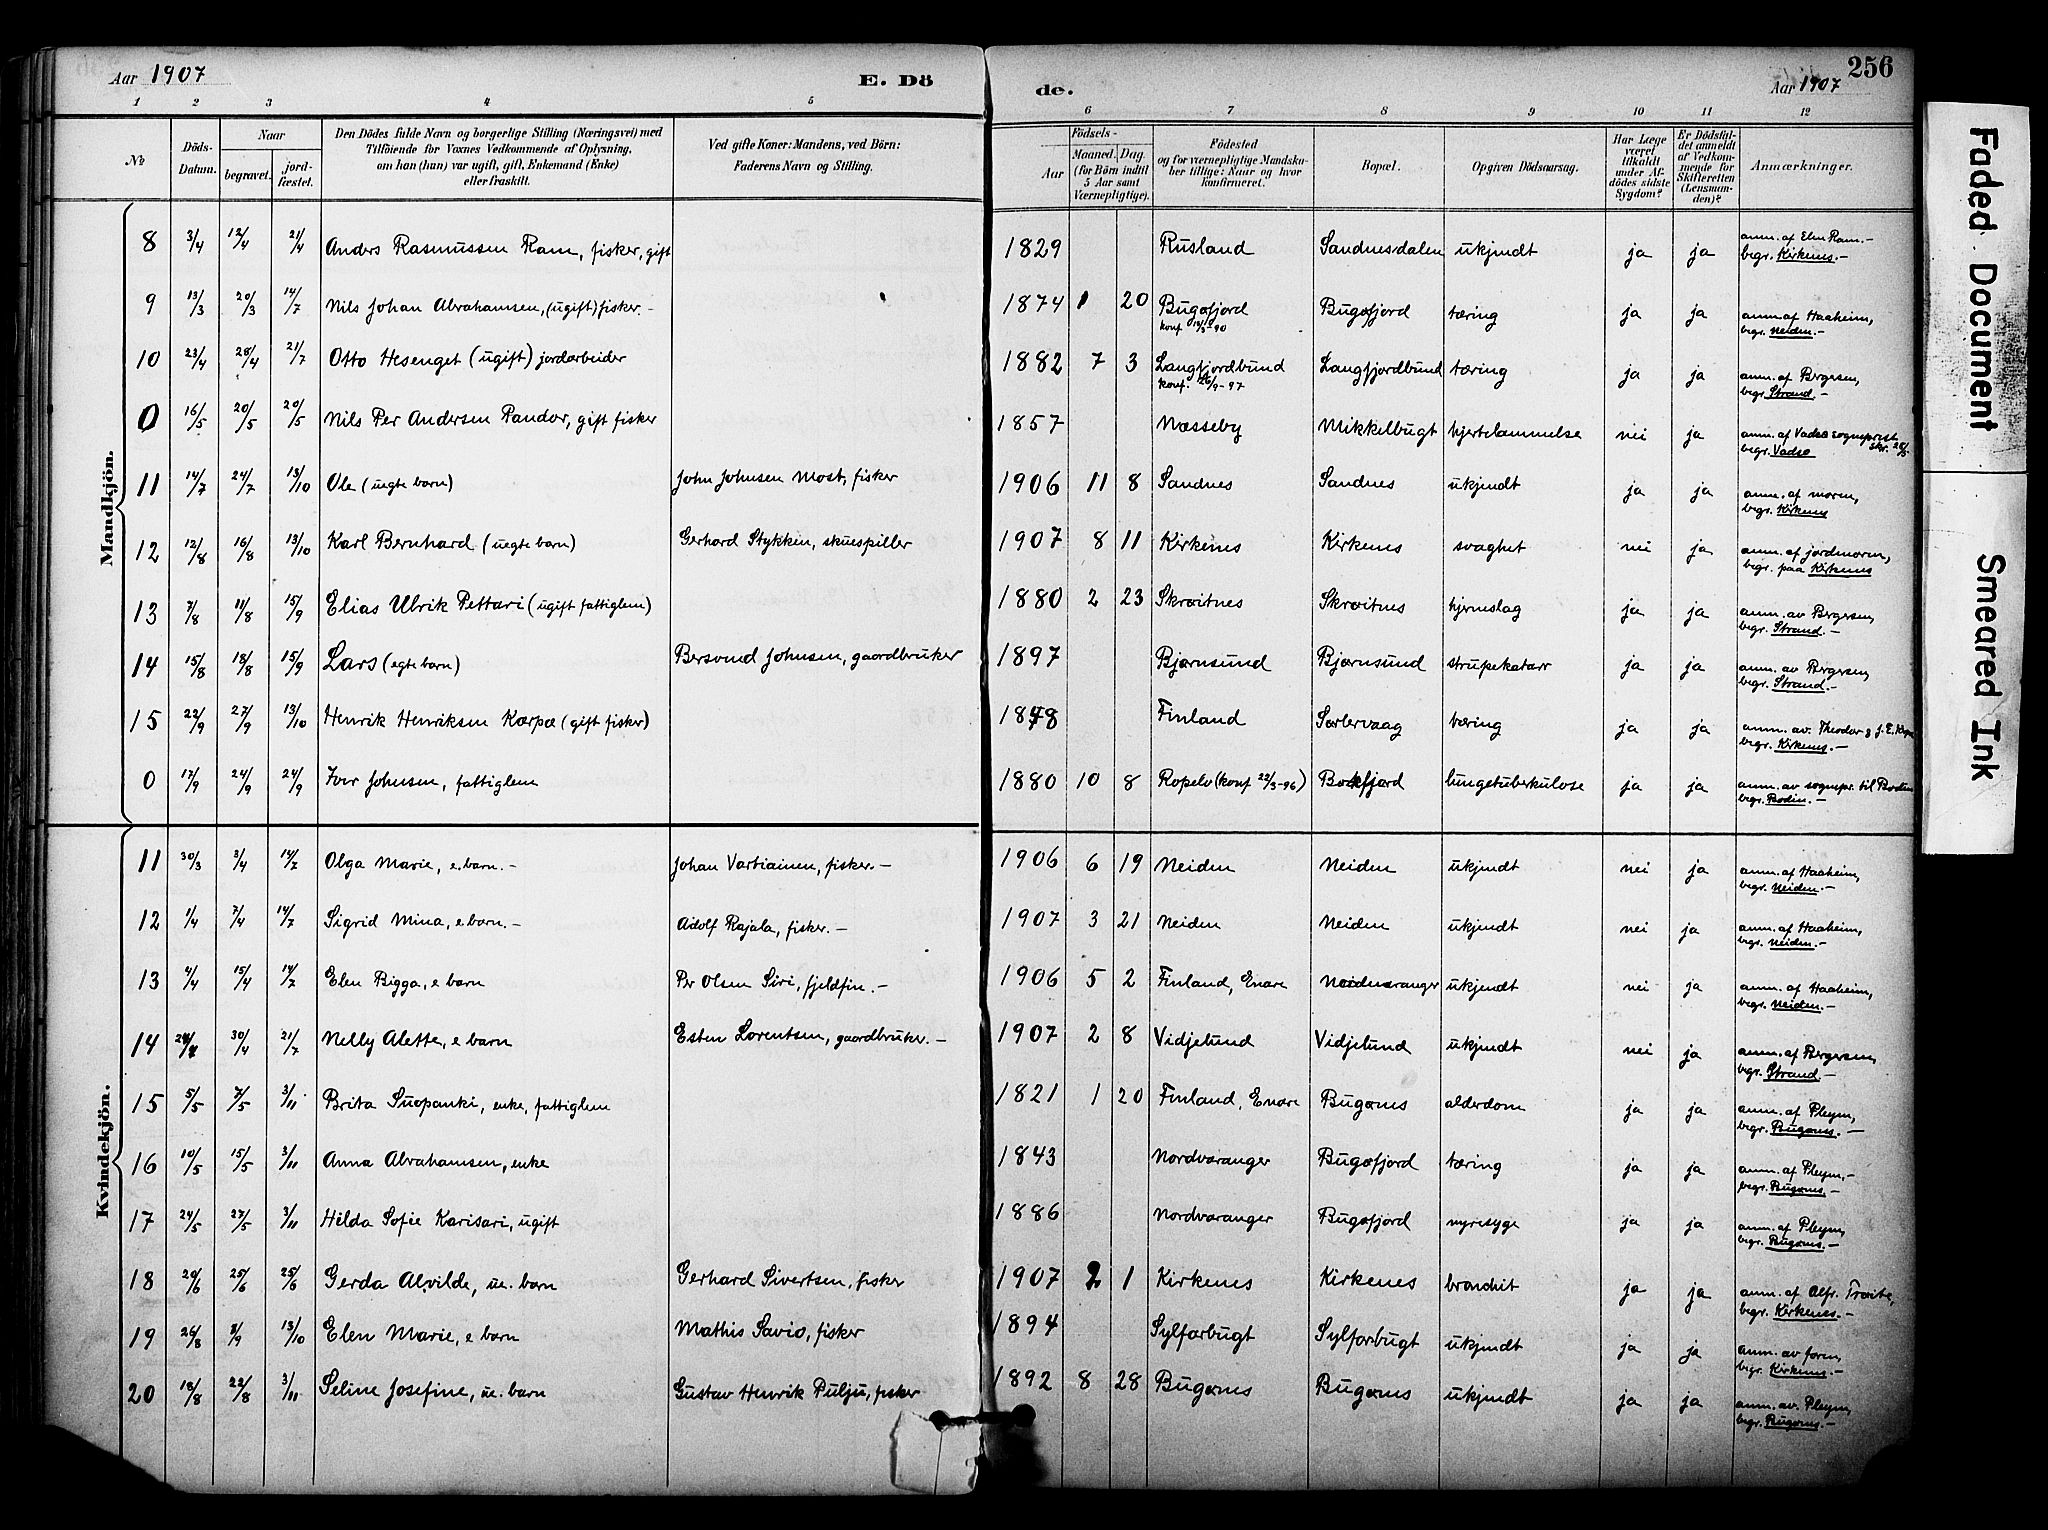 Aar 1907 E. Dö de. Aar 1907 256
1 2 3 4 5 6 7 8 9 10 11 12
No
Döds-Datum.
Naar
begravet.
jord-fæstet.
Den Dödes fulde Navn og borgerlige Stilling (Næringsvei) med
Tilföiende for Voxnes Vedkommende af Oplysning,
om han (hun) var ugift, gift, Enkemand (Enke)
eller fraskilt.
Ved gifte Koner: Mandens, ved Börn:
Faderens Navn og Stilling.
Födsels-
Aar
Maaned. Dag.
(for Börn indtil
5 Aar samt
Værnepligtige).
Födested
og for værnepligtige Mandsku-
ber tillige: Naar og hvor
konfirmeret.
Bopæl.
Opgiven Dödsaarsag.
Har Læge
været
tilkaldt
under Af-
dödes sidste
Sygdom?
Er Dödsfal-
det anmeldt
af Vedkom-
mende for
Skifteretten
(Lensman-
den)?
Anmærkninger.
Mandkjön.
8 3/4 12/4 21/4 Anders Rasmussen Ram, fisker, gift 1829 Rusland Sandnesdalen ukjendt ja ja anm. af Elen Ram.-
begr. Kirkenes.-
9 13/3 20/3 14/7 Nils Johan Abrahamsen, (ugift) fisker.- 1874 1 20 Bugøfjord Bugøfjord tæring ja ja anm. af Haaheim,
konf. 14/9-90 begr. Neiden.-
10 23/4 28/4 21/7 Otto Hesenget (ugift) jordarbeider 1882 7 3 Langfjordbund Langfjordbund tæring ja ja anm. af Bergersen,
konf. 26/9-97 begr. Strand.-
0 16/5 20/5 20/5 Nils Per Andersen Randor, gift fisker 1857 Næsseby Mikkelbugt hjertelammelse nei ja anm. af Vadsø sogneprest
begr. Vadsø
11 14/7 24/7 13/10 Ole (uegte barn) John Johnsen Most, fisker 1906 11 8 Sandnes Sandnes ukjendt ja ja anm. af moren,
begr. Kirkenes
12 12/8 16/8 13/10 Karl Bernhard (uegte barn) Gerhard Stykkin, skuespiller 1907 8 11 Kirkenes Kirkenes svaghet nei ja anm. af jordmoren,
begr. paa Kirkenes
13 7/8 11/8 15/9 Elias Ulrik Pettari (ugift fattiglem) 1880 2 23 Skroitnes Skroitnes hjerneslag ja ja anm. av Bergersen,
begr. Strand.-
14 15/8 18/8 15/9 Lars (egte barn) Bersvend Johnsen, gaardbruker 1897 Bjørnsund Bjørnsund strupekatarr ja ja anm. av Bergersen,
begr. Strand.-
15 22/9 27/9 13/10 Henrik Henriksen Karpæ (gift fisker) 1878 Finland Sørlervaag tæring ja ja anm. av Theodor & J. E.
begr. Kirkenes.-
0 17/9 24/9 24/9 Iver Johnsen, fattiglem 1880 10 8 Ropelv (konf 22/3-96) Bøkfjord lungetuberkulose ja ja anm. av sognepr. til Bodin
begr. Bodin.-
Kvindekjön.
11 30/3 3/4 14/7 Olga Marie, e. barn.- Johan Vartiainen, fisker.- 1906 6 19 Neiden Neiden ukjendt nei ja anm. af Haaheim,
begr. Neiden.-
12 1/4 7/4 14/7 Sigrid Mina, e. barn.- Adolf Rajala, fisker.- 1907 3 21 Neiden Neiden ukjendt nei ja anm. af Haaheim,
begr. Neiden.-
13 4/4 15/4 14/7 Elen Bigga, e barn Per Olsen Siri, fjeldfin.- 1906 5 2 Finland, Enare ukjendt nei ja anm. af Haaheim,
begr. Neiden.-
14 30/4 21/7 Nelly Alette, e barn Esten Lorentsen, gaardbruker.- 1907 2 8 Vidjelund Vidjelund ukjendt nei ja anm. af Bergersen,
begr. Strand.-
15 5/5 7/5 3/11 Brita Suopanki, enke, fattiglem 1821 1 20 Finland, Enare Bugønes alderdom ja ja anm. af Pleym,
begr. Bugønes.-
16 10/5 15/5 3/11 Anna Abrahamsen, enke 1843 Nordvaranger Bugøfjord tæring ja ja anm. af Pleym,-
begr. Bugønes.-
17 24/5 27/5 3/11 Hilda Sofie Karisari, ugift 1886 Nordvaranger Bugøfjord nyresyge ja ja anm. af Pleym,
begr. Bugønes.-
18 20/6 25/6 25/6 Gerda Alvilde, ue. barn Gerhard Sivertsen, fisker 1907 2 1 Kirkenes Kirkenes bronchit ja ja anm. af Alfr. Traite,
begr. Kirkenes.-
19 26/8 8/9 13/10 Elen Marie, e barn Mathis Savio, fisker 1894 Sylforbugt Sylforbugt ukjendt ja ja anm. av faren,
begr. Kirkenes.-
20 18/8 22/8 3/11 Seline Josefine, ue. barn Gustav Henrik Pulju, fisker 1892 8 28 Bugønes Bugønes ukjendt ja ja anm. av. Pleym,
begr. Bugønes.-
Faded Document
Smeared Ink